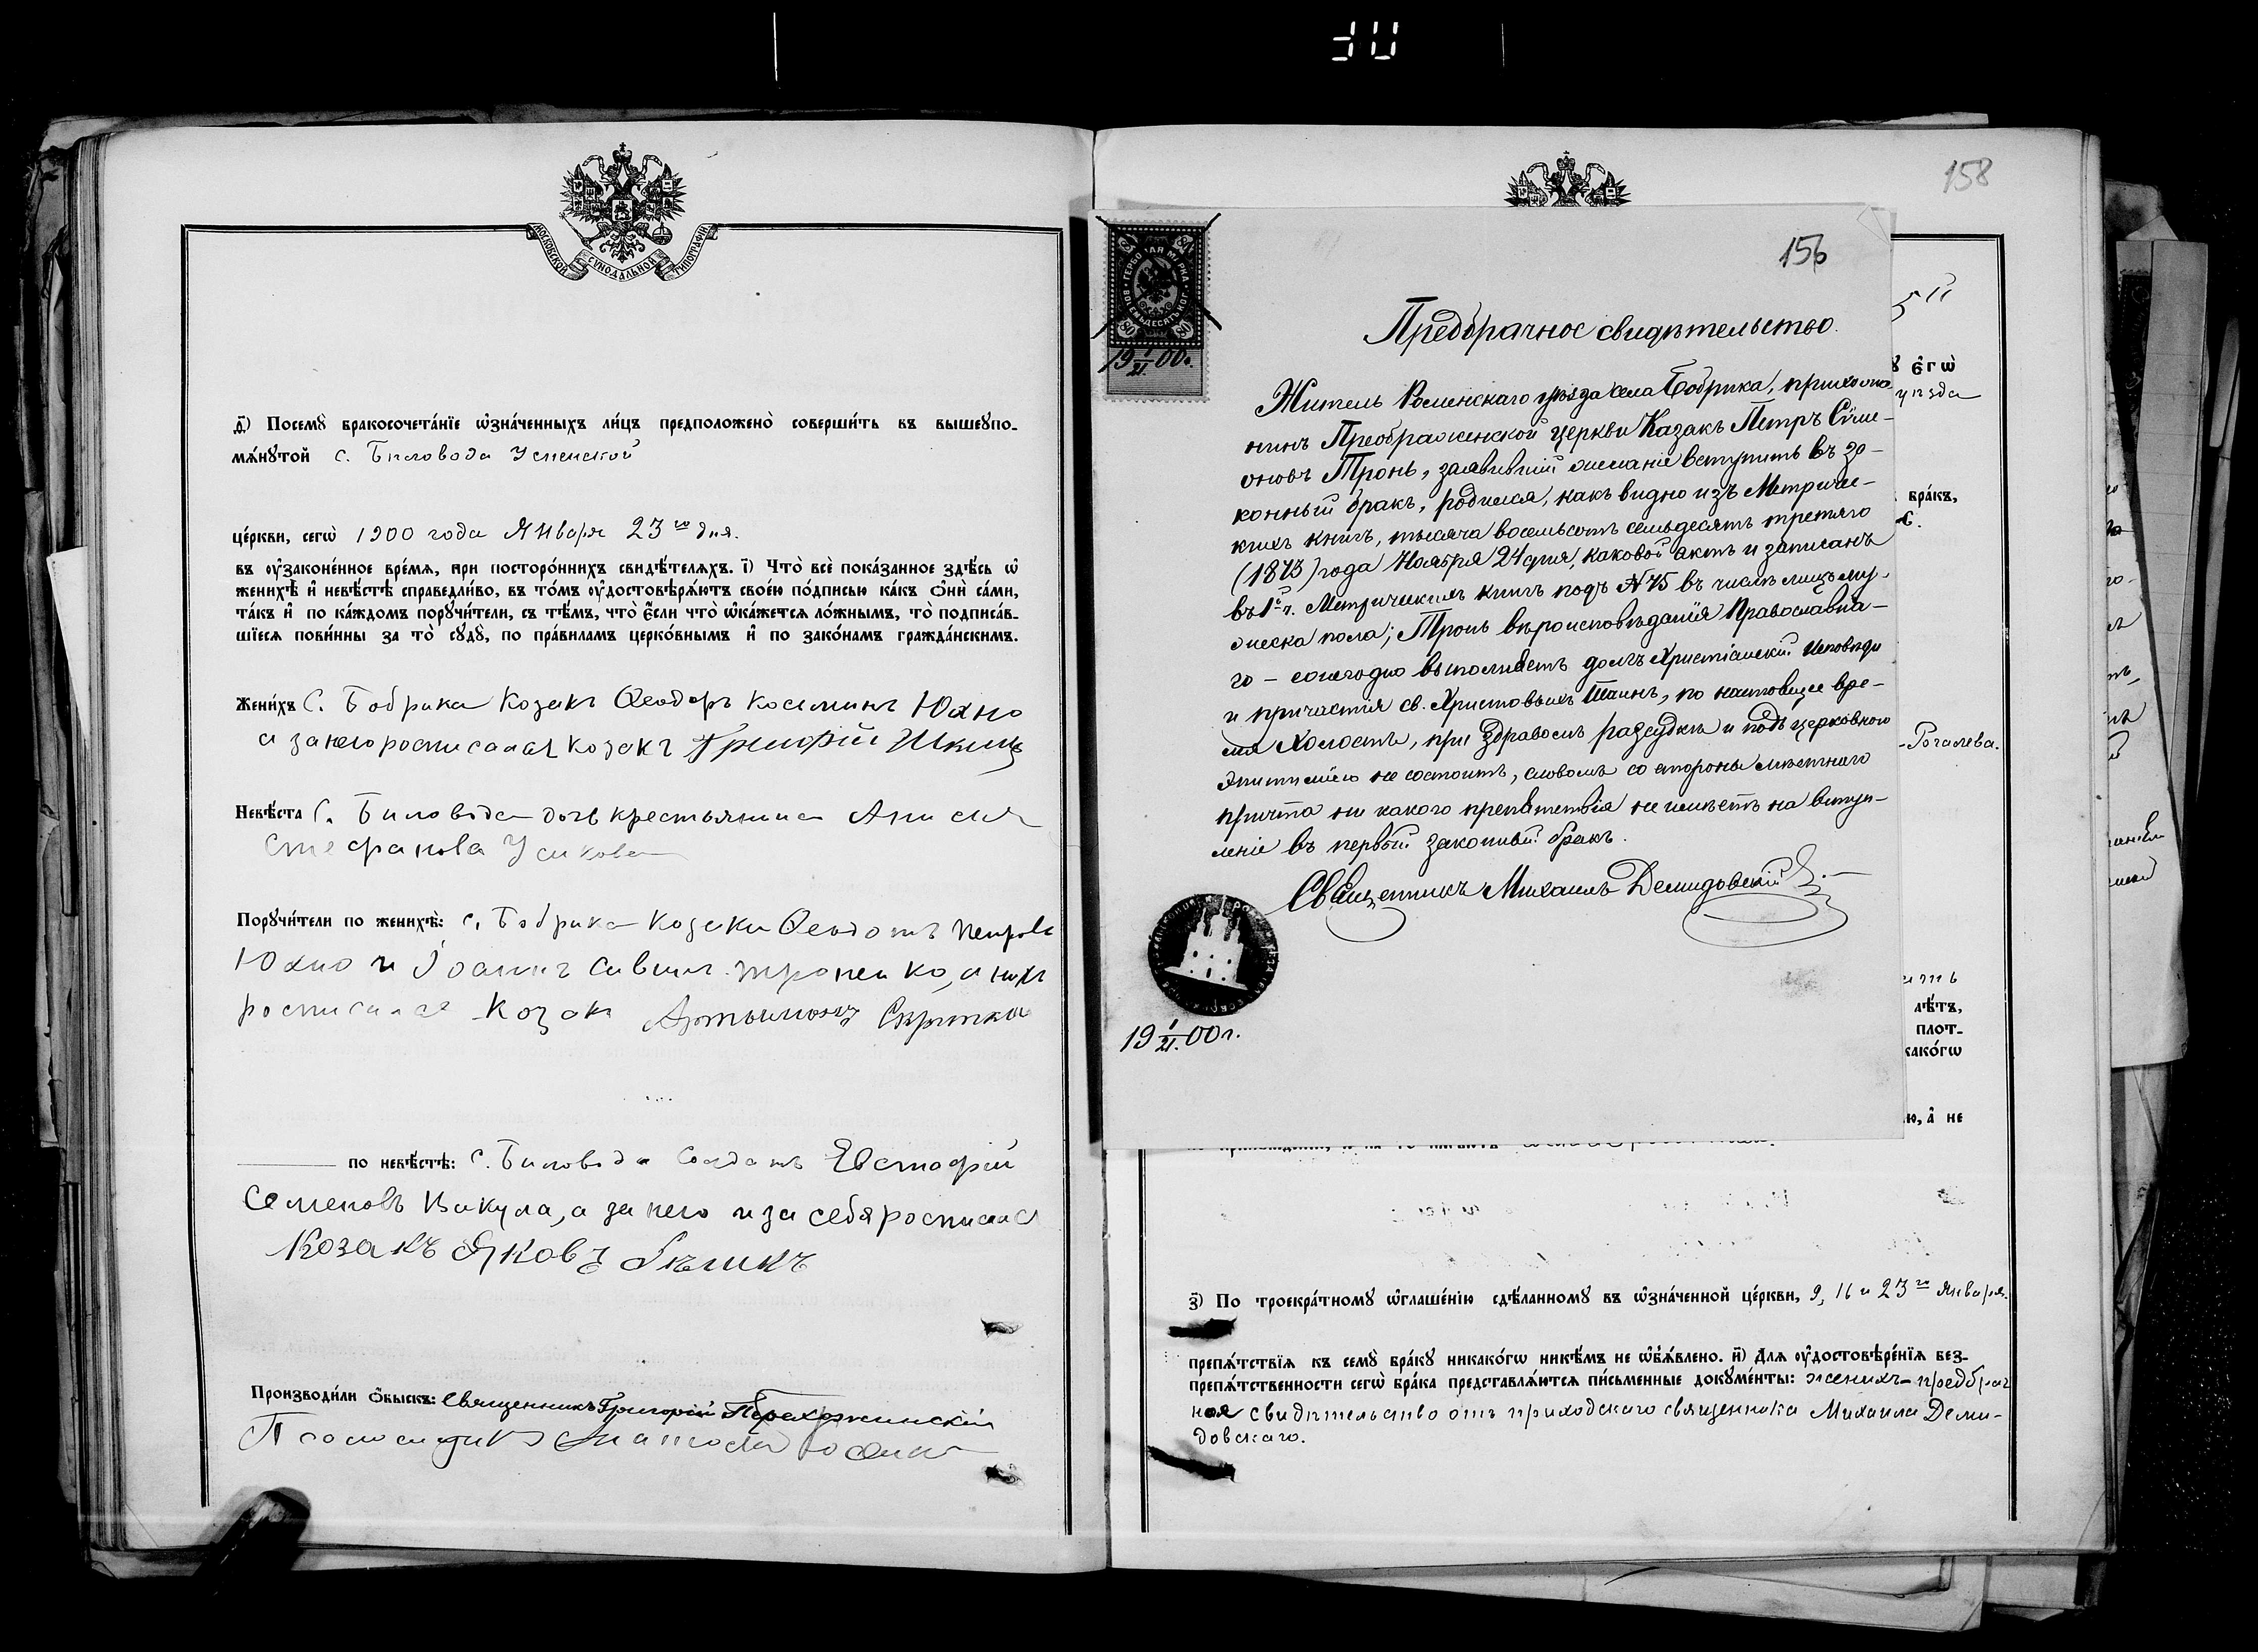 МОСКОВСКОЙ СУНОДАЛЬНОЙ ТИПОГРАФІИ
д҃) Посемꙋ̀ бракосочета́нїе ѡ҆зна́ченныхъ ли́цъ предположено̀ соверши́ть въ вышеꙋпо-
мѧ́нꙋтой с. Биловода Успенской
це́ркви, сегѡ̀ 1900 года Января 23го дня.
въ ᲂу҆законе́нное вре́мѧ, при посторо́ннихъ свидѣ́телѧхъ. і҃) Что̀ всѐ пока́занное здѣ́сь ѡ҆
женихѣ̀ и҆ невѣ́стѣ справедли́во, въ то́мъ ᲂу҆достовѣрѧ́ютъ свое́ю по́дписью ка́къ ѻ҆нѝ са́ми,
та́къ и҆ по ка́ждомъ порꙋчи́тели, съ тѣ́мъ, что̀ є҆́сли что̀ ѡ҆ка́жется ло́жнымъ, то̀ подписа́в-
шїеся пови́нны за то̀ сꙋдꙋ̀, по пра́виламъ церко́внымъ и҆ по зако́намъ гражда́нскимъ.
Жени́хъ С. Бобрика Козакъ Ѳеодоръ Косминъ Юхно
а за него росписался козакъ Григорій
Невѣ́ста С. Биловода дочь крестьянина Анисія
Стефанова Усикова
Порꙋчи́тели по женихѣ̀: с. Бобрика Козаки Ѳеодотъ Петровъ
Юхно и Іоаннъ Савинъ Троненко, а за нихъ
росписался Козакъ
по невѣ́стѣ: С. Биловода Солдатъ Евстафій
Семеновъ Викула, а за него и за себя росписался
Козакъ Яковъ
Производи́ли ѻ҆́быскъ: Священникъ Григорій
Псаломщикъ
158
ГЕРБОВАЯ МАРКА
ВОСЕМЬДЕСЯТЪ КОП.
80 80
19 1/21 00 г.
156
Предбрачное свидѣтельство.
Житель Роменскаго уѣзда села Бобрика, прихожа-
нинъ Преображенской церкви Казакъ Петръ Симе-
оновъ Тронь, заявившій желаніе вступить въ за-
конный бракъ, родился, какъ видно изъ Метричес-
кихъ книгъ, тысяча восемьсотъ семьдесятъ третяго
(1873) года Ноября 24 дня, каковой актъ и записанъ
въ 1й ч. Метрическихъ книгъ подъ № 75 въ числѣ лицъ му-
жеска пола; Тронь вѣроисповѣданія Православна-
го – ежегодно выполняетъ долгъ Христіанскій Исповѣди
и причастія св. Христовыхъ Таинъ, по настоящее вре-
мя Холостъ, при здравомъ разсудкѣ и подъ церковною
эпитиміею не состоитъ, словомъ со стороны мѣстнаго
причта ни какого препятствія не имѣетъ на вступ-
леніе въ первый законный бракъ.
Священникъ Михаилъ Демидовскій
19 1/21 00 г.
є҆гѡ̀
уѣзда
бра́къ,
Рогалева.
лѣ́тъ,
плот-
како́гѡ
ю, а҆ не
з҃) По троекра́тномꙋ ѡ҆глаше́нїю сдѣ́ланномꙋ въ ѡ҆зна́ченной це́ркви, 9, 16 и 23го Января.
препѧ́тствїѧ къ семꙋ̀ бра́кꙋ никако́гѡ никѣ́мъ не ѡ҆б̾ѧ́влено. и҃) Длѧ ᲂу҆достовѣре́нїѧ без-
препѧ́тственности сегѡ̀ бра́ка представлѧ́ютсѧ пи́сьменные докꙋме́нты: женихъ – предбрач
ное свидѣтельство отъ приходскаго священника Михаила Деми-
довскаго.